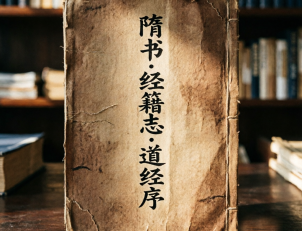 隋书·经籍志·道经序